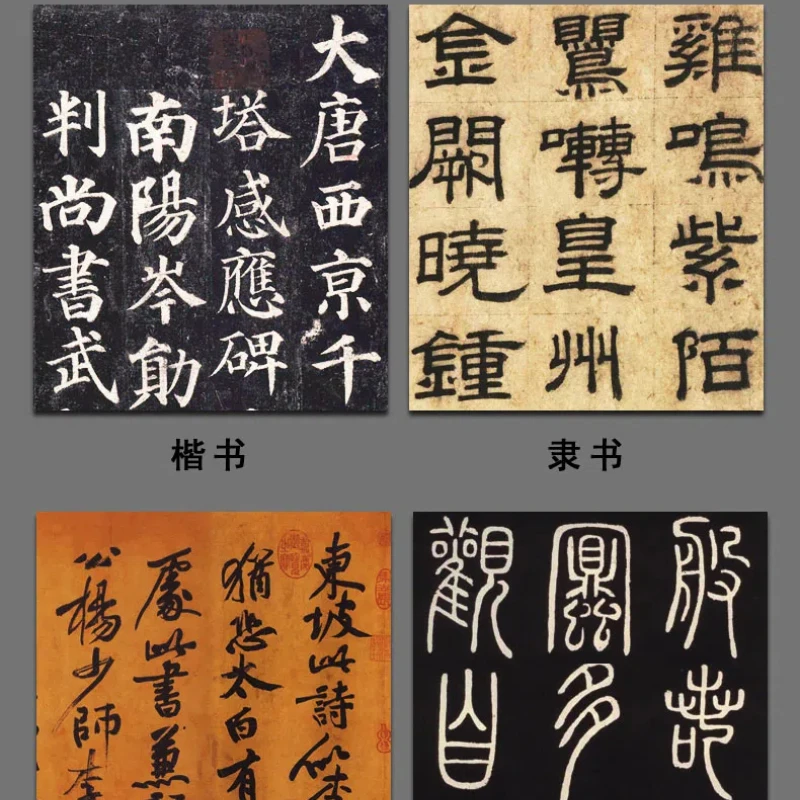 大唐西京千
塔感應碑
南陽岑勛
判尚書武
雞鳴紫陌
鸎囀皇州
金闕曉鍾
楷书
隶书
東坡此詩似李
猶恐太白有
處此書兼
公楊少師李
般若
多
觀自